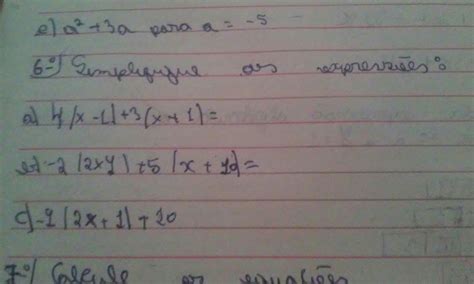 e) a² + 3a para a = -5
6-º) Simplifique as expressões:
a) 4(x - 1) + 3(x + 1) =
-2(2xy) + 5(x + 10) =
c) -1(2x + 1) + 20
7-º) Calcule as equações